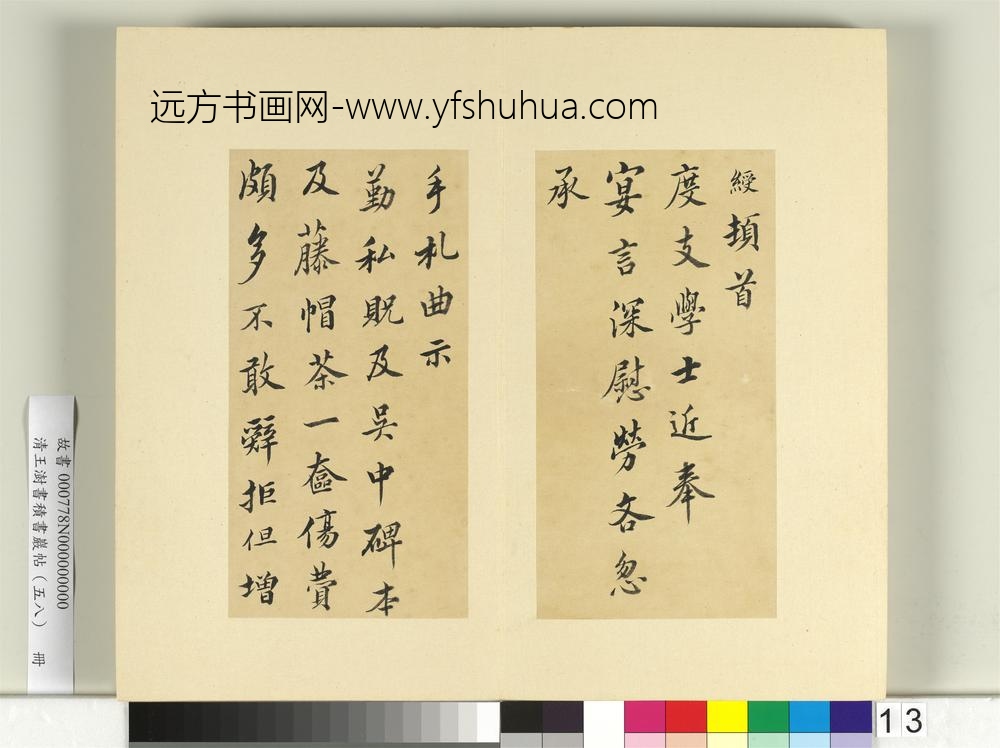 远方书画网-www.yfshuhua.com
綬頓首
度支學士近奉
宴言深慰勞吝忽
承
手札曲示
勤私貺及吳中碑本
及藤帽茶一奩傷費
頗多不敢辭拒但增
故書000778N000000000
清王澍書積書巖帖（五八） 冊
13